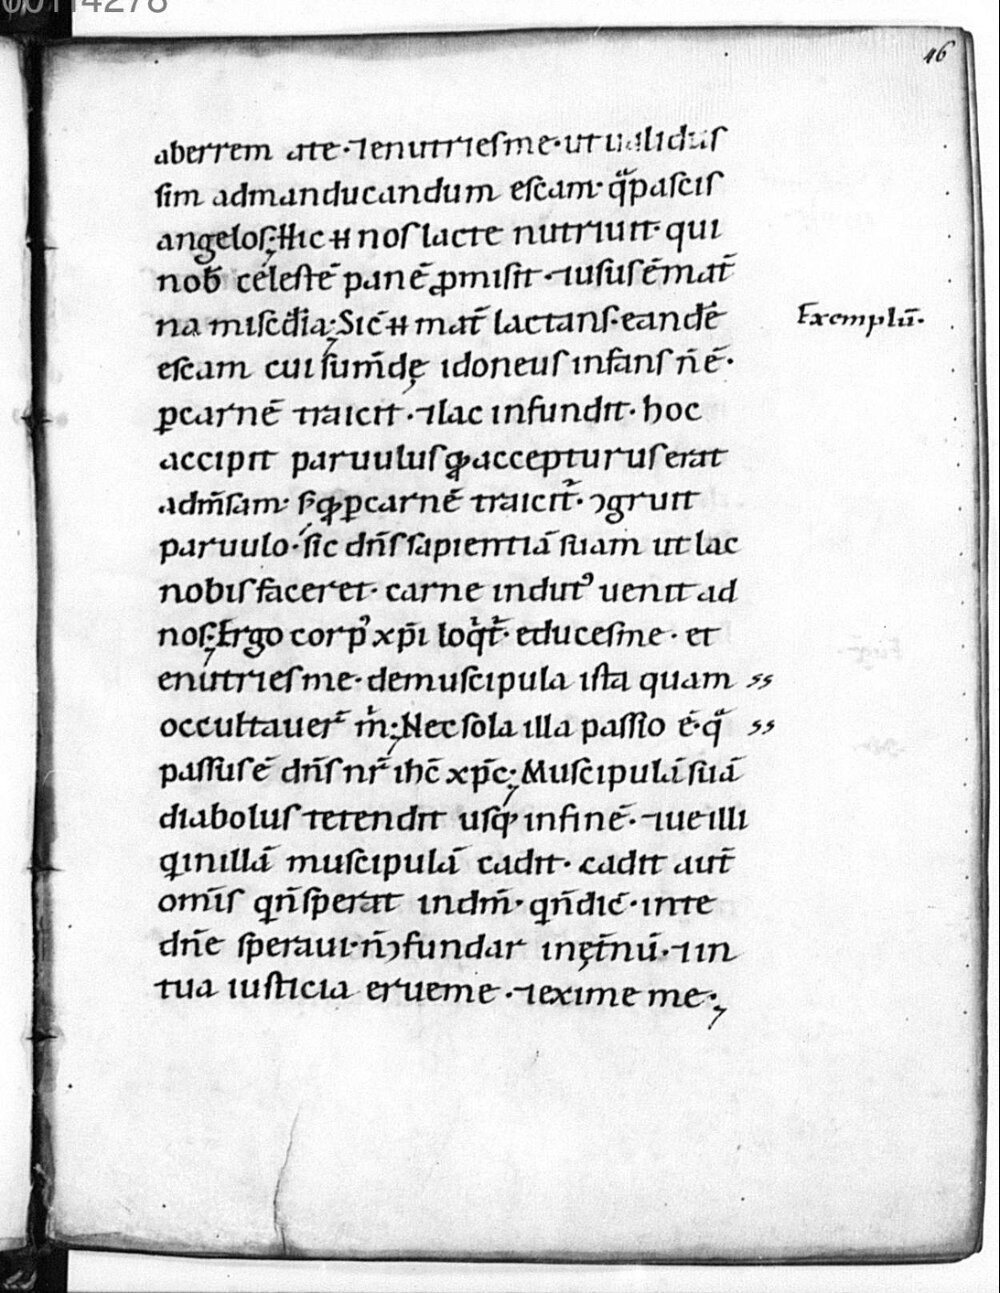 00114278
46
aberrem ate · ⁊enutriesme · ut ualidus
sim admanducandum escam · q̊ pascis
angelos; Hic H nos lacte nutriuit · qui
nob̄ celestē panē ꝓmisit · ⁊usus ē mat̄
na misc̄dia; Sic̄ H mat̄ lactans · eandē
Exemplū.
escam cui sum̄dę idoneus infans n̄ ē ·
ꝑcarnē traicit · ⁊lac infundit · hoc
accipit paruulus ꝙ accepturus erat
adm̄sam · s; ꝙ ꝑcarnē traicit᷑ · ꝯgruit
paruulo · sic dn̄s sapientiā suam ut lac
nobis faceret · carne indutꝰ uenit ad
nos; Ergo corpꝰ xp̄i loqͥt᷑ · educesme · et
enutriesme · demuscipula ista quam
occultauer̄ m̍; Nec sola illa passio ē · qͣ
passus ē dn̄s nr̄ ih̄c xp̄c; Muscipulā suā
diabolus tetendit usq; infinē · ⁊ue illi
q̍ inillā muscipulā cadit · cadit aut̄
om̄is qͥ n̄ sperat indm̄ · qͥ n̄ dic̄ · inte
dn̄e speraui · n̄ ꝯfundar inęt̄nū · ⁊in
tua iusticia erueme · ⁊exime me;